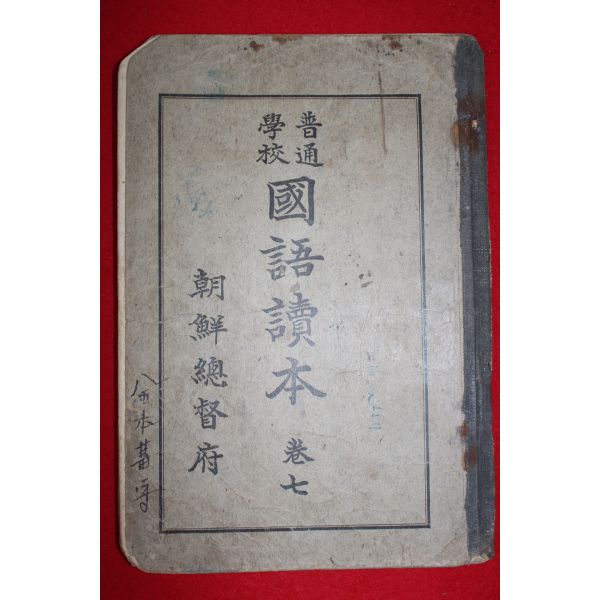 普通
學校
國語讀本 卷七
朝鮮總督府